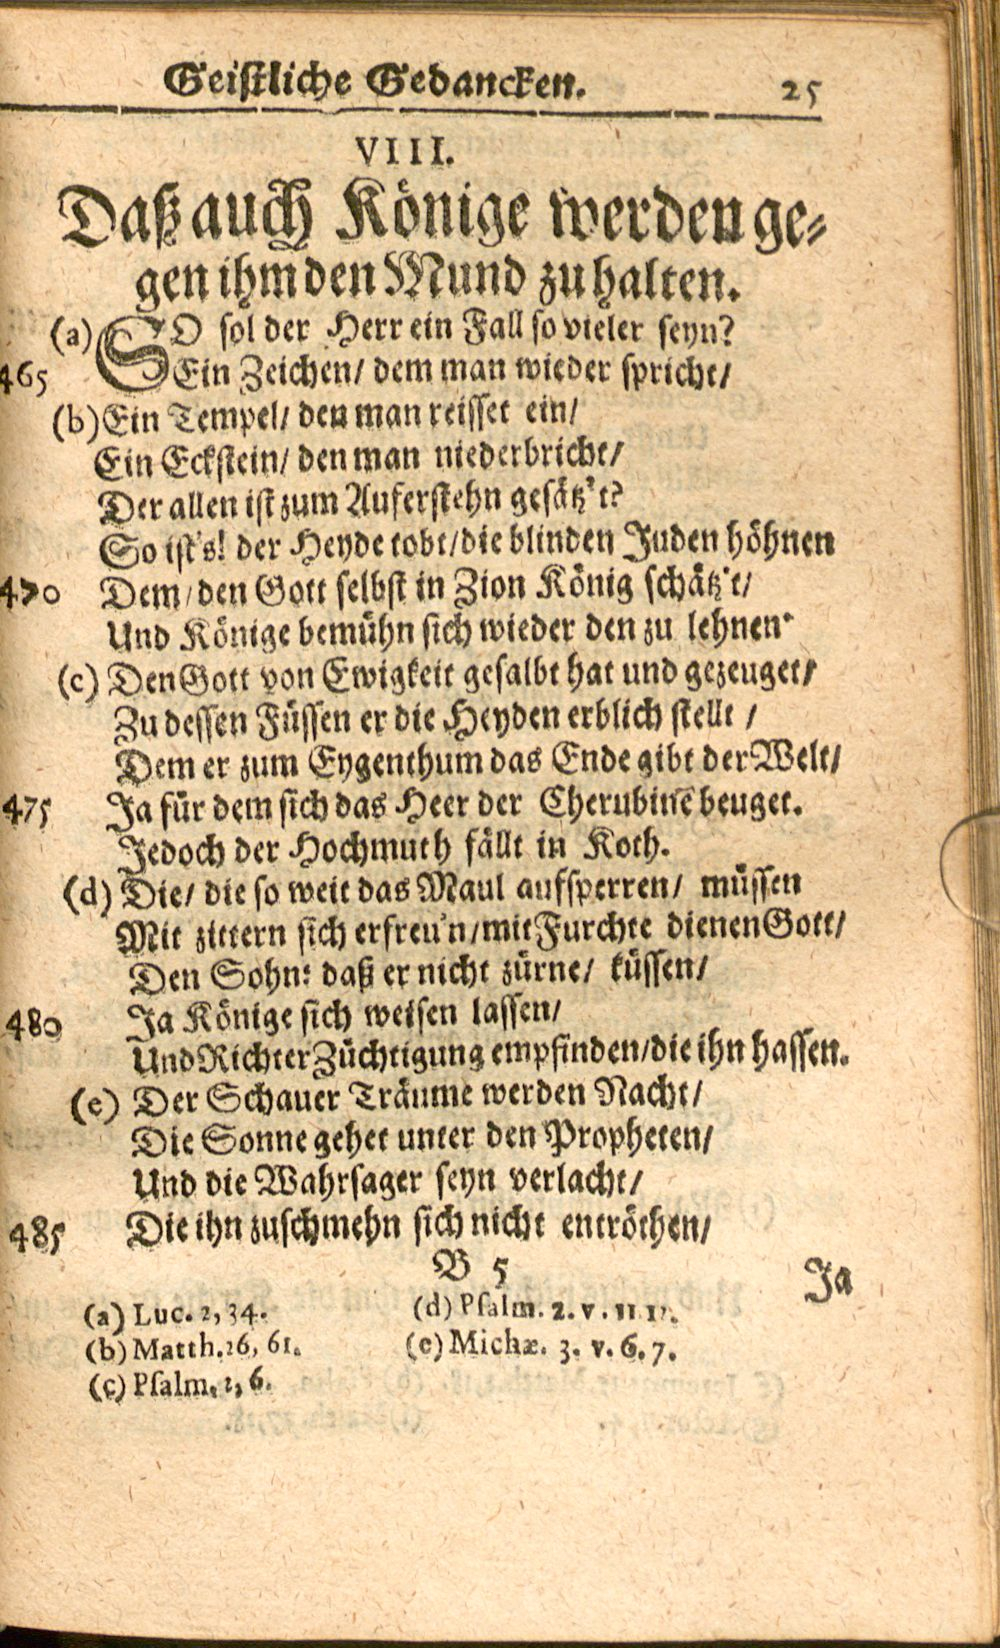 Geistliche Gedancken. 25
VIII.
Daß auch Könige werden ge-
gen ihm den Mund zuhalten.
(a) SO sol der Herr ein Fall so vieler seyn?
465 Ein Zeichen/ dem man wieder spricht/
(b) Ein Tempel/ den man reisset ein/
Ein Eckstein/ den man niederbricht/
Der allen ist zum Auferstehn gesätz't?
So ist's! der Heyde tobt/die blinden Juden höhnen
470 Dem/den Gott selbst in Zion König schätz't/
Und Könige bemühn sich wieder den zu lehnen·
(c) Den Gott von Ewigkeit gesalbt hat und gezeuget/
Zu dessen Füssen er die Heyden erblich stellt /
Dem er zum Eygenthum das Ende gibt der Welt/
475 Ja für dem sich das Heer der Cherubinē beuget.
Jedoch der Hochmuth fällt in Koth.
(d) Die/ die so weit das Maul aufsperren/ müssen
Mit zittern sich erfreu'n/mit Furchte dienen Gott/
Den Sohn: daß er nicht zürne/ küssen/
480 Ja Könige sich weisen lassen/
Und Richter Züchtigung empfinden/die ihn hassen.
(e) Der Schauer Träume werden Nacht/
Die Sonne gehet unter den Propheten/
Und die Wahrsager seyn verlacht/
485 Die ihn zuschmehn sich nicht entröthen/
B 5 Ja
(a) Luc. 2, 34. (d) Psalm. 2. v. 11.
(b) Matth. 26, 61. (e) Michæ. 3. v. 6. 7.
(c) Psalm. 2, 6.